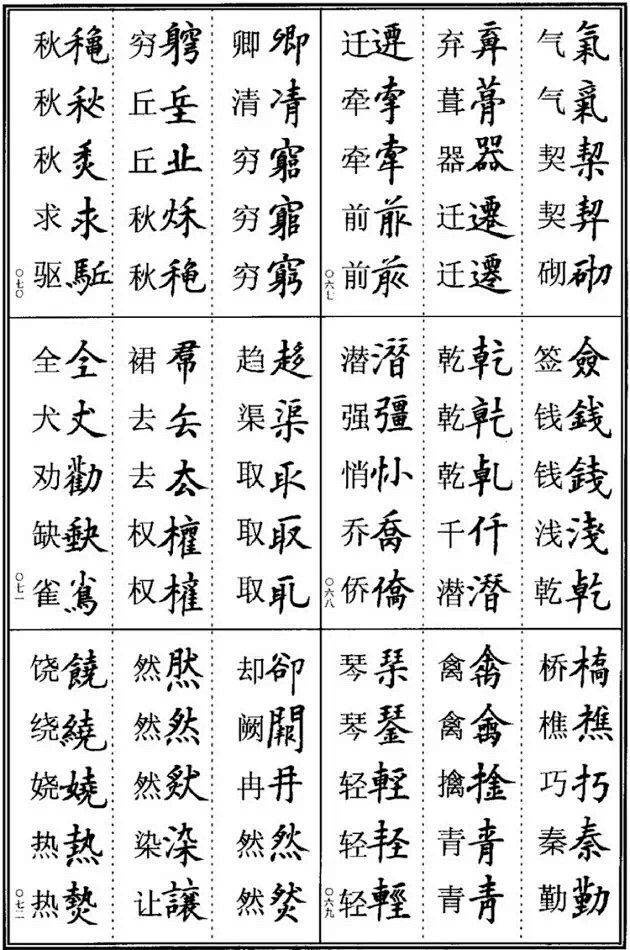 气氣
气氣
契契
契契
砌砌
弃弃
葺葺
器器
迁遷
迁遷
迁遷
牵牵
牵牵
前前
前前
〇六七
签僉
钱錢
钱錢
浅淺
乾乾
乾乾
乾乾
乾乹
千仟
潜潛
潜潛
强彊
悄悄
乔喬
侨僑
〇六八
桥橋
樵樵
巧巧
秦秦
勤勤
禽禽
禽禽
擒擒
青青
青青
琴琴
琴琴
轻輕
轻軽
轻輕
〇六九
卿卿
清凊
穷窮
穷窮
穷窮
穷竆
丘垕
丘丠
秋秌
秋龝
秋龝
秋秋
秋秋
求求
驱駈
〇七〇
趋趍
渠渠
取取
取取
取取
裙帬
去厺
去去
权權
权權
全仝
犬犬
劝勸
缺缺
雀雀
〇七一
却卻
阙闕
冉冉
然然
然然
然然
然然
然然
染染
让讓
饶饒
绕繞
娆嬈
热熱
热熱
〇七二